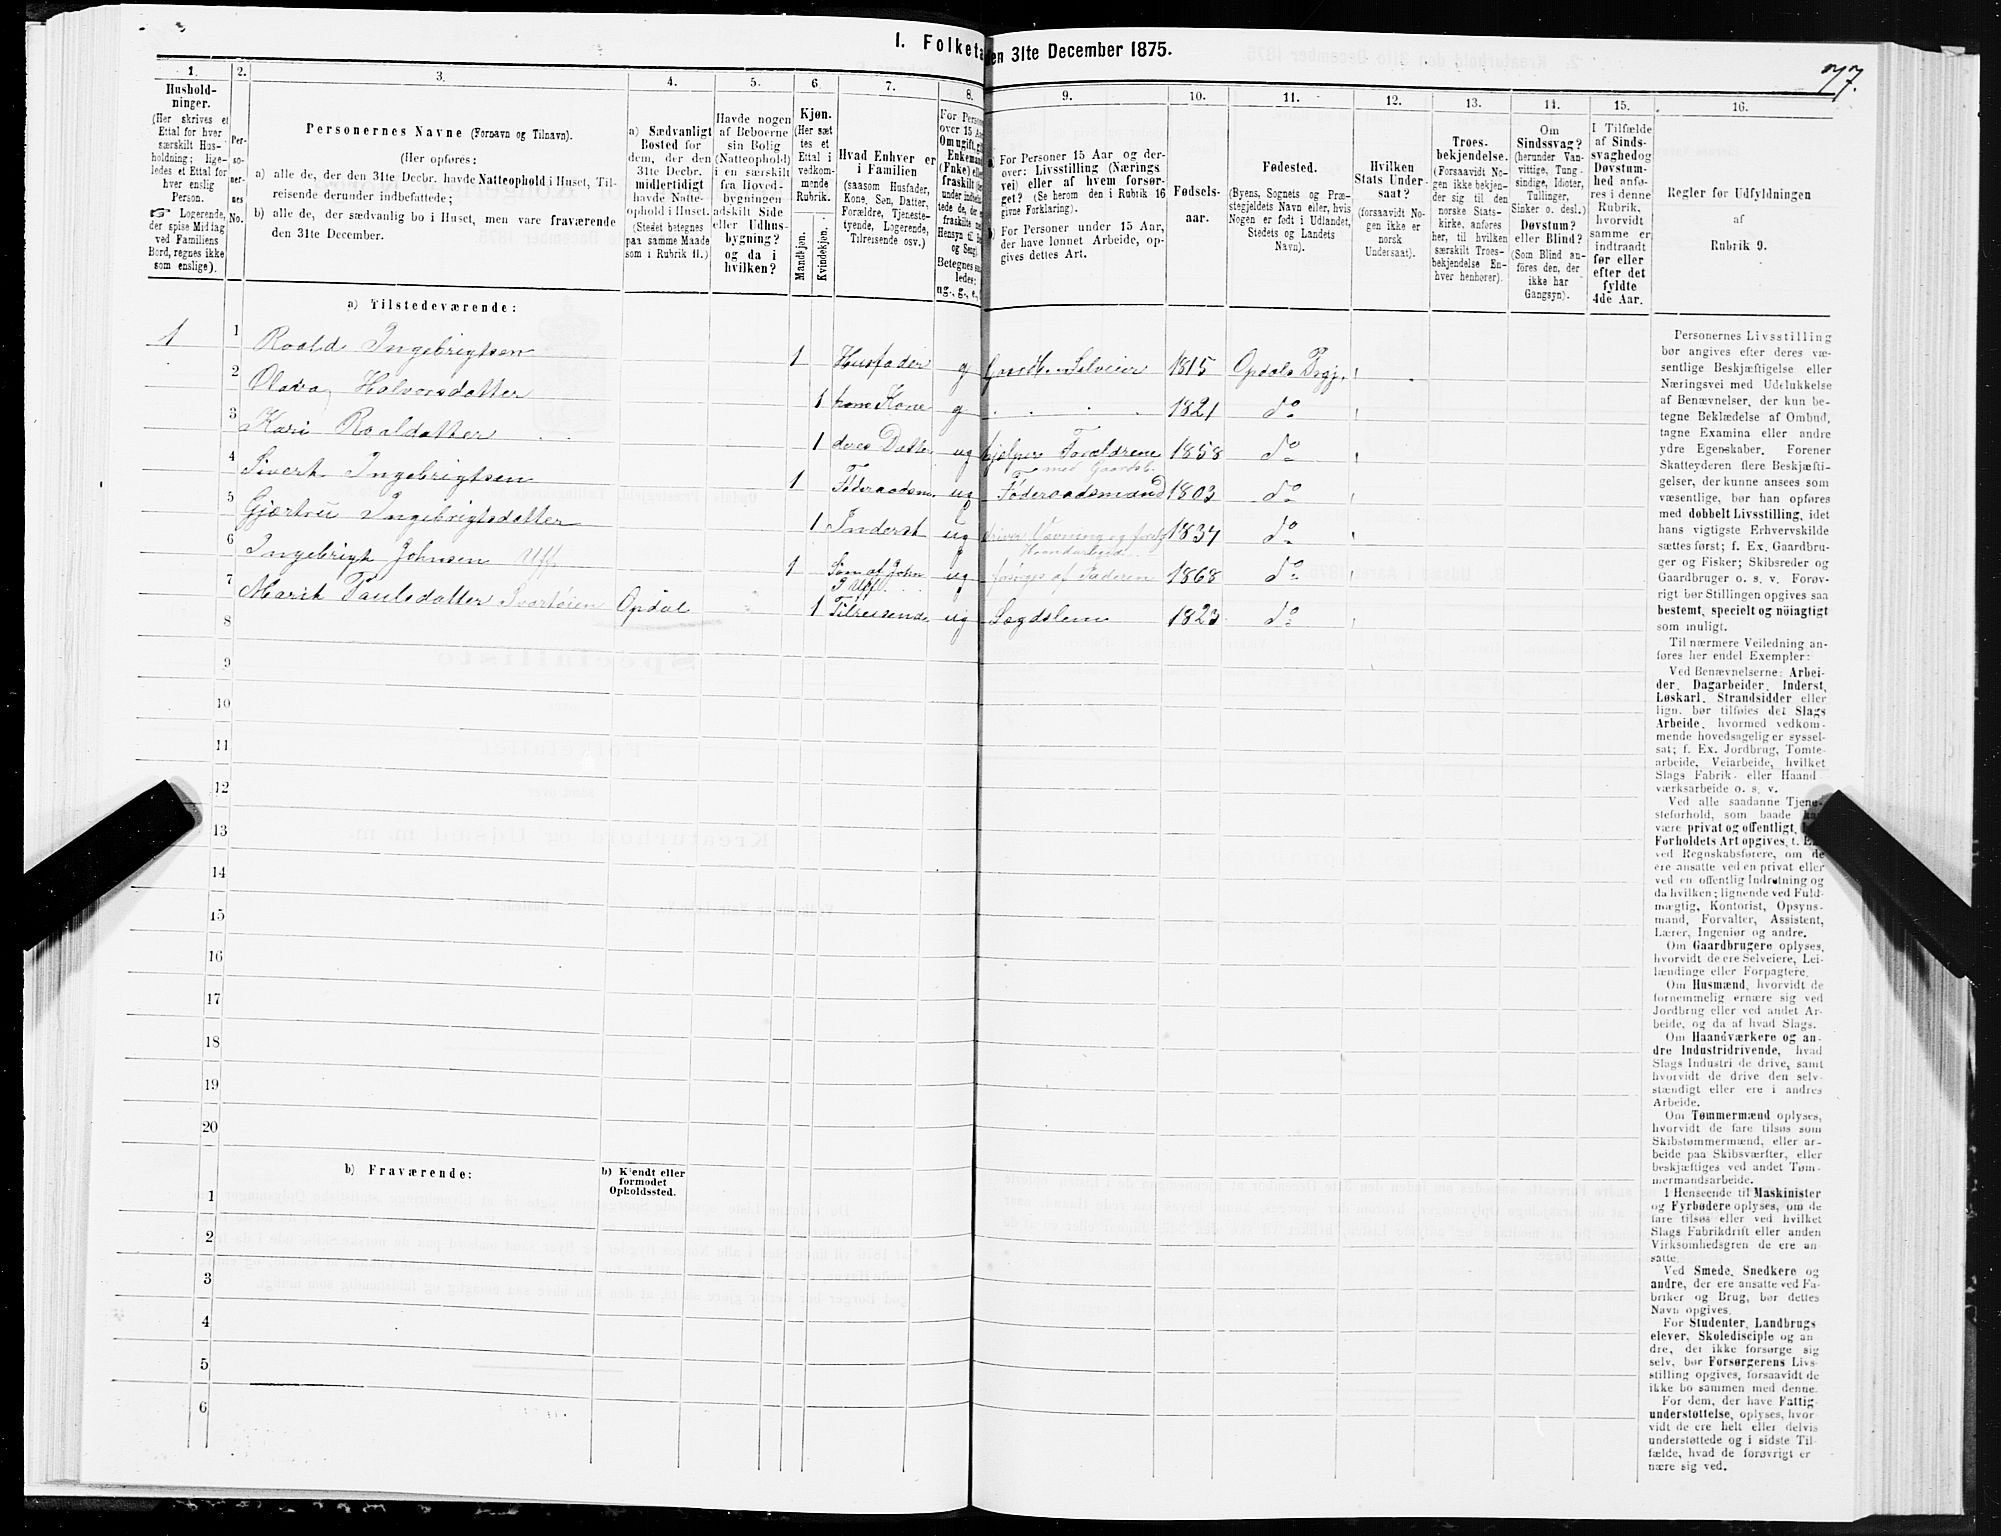 I. Folketa
den 31te December 1875.
77.
1.
2.
3.
4.
5.
6.
7.
8.
9.
10.
11.
12.
13.
14.
15.
16.
Hushold-
ninger.
(Her skrives et
Ettal for hver
særskilt Hus-
holdning; lige-
ledes et Ettal for
hver enslig
Person.
☞ Logerende,
der spise Middag
ved Familiens
Bord, regnes ikke
som enslige).
Per-
so-
ner-
nes
No.
Personernes Navne (Fornavn og Tilnavn).
(Her opføres:
a) alle de, der den 31te Decbr. havde Natteophold i Huset, Til-
reisende derunder indbefattede;
b) alle de, der sædvanlig bo i Huset, men vare fraværende
den 31te December.
a) Sædvanligt
Bosted for
dem, der den
31te Decbr.
midlertidigt
havde Natte-
ophold i Huset.
(Stedet betegnes
paa samme Maade
som i Rubrik 11.)
Havde nogen
af Beboerne
sin Bolig
(Natteophold)
i en særskilt
fra Hoved-
bygningen
adskilt Side
eller Udhus-
bygning?
og da i
hvilken?
Kjøn.
(Her sæt
tes et
Ettal i
vedkom-
mende
Rubrik.
Mandkjøn.
Kvindekjøn.
Hvad Enhver er
i Familien
(saasom Husfader,
Kone, Søn, Datter,
Forældre, Tjeneste-
tyende, Logerende,
Tilreisende osv.)
For Person
over 15 Aa
Om ugift, gi
Enkemand
(Enke) elle
fraskilt
Betegnes saa
ledes:
ug., g., e.,
a) For Personer 15 Aar og der-
over: Livsstilling (Nærings
vei) eller af hvem forsør-
get? (Se herom den i Rubrik 16
givne Forklaring).
b) For Personer under 15 Aar,
der have lønnet Arbeide, op-
gives dettes Art.
Fødsels-
aar.
Fødested.
(Byens, Sognets og Præ-
stegjeldets Navn eller, hvis
Nogen er født i Udlandet,
Stedets og Landets
Navn).
Hvilken
Stats Under-
saat?
(forsaavidt No-
gen ikke er
norsk
Undersaat).
Troes-
bekjendelse.
(Forsaavidt No-
gen ikke bekjen-
der sig til den
norske Stats-
kirke, anføres
her, til hvilken
særskilt Troes-
bekjendelse En-
hver henhører).
Om
Sindssvag?
(herunder Van-
vittige, Tung-
sindige, Idioter,
Tullinger,
Sinker o. desl.)
Døvstum?
eller Blind?
(Som Blind an-
føres den, der
ikke har
Gangsyn).
I Tilfælde
af Sinds-
svaghed og
Døvstum-
hed anfø-
res i denne
Rubrik,
hvorvidt
samme er
indtraadt
før eller
efter det
fyldte
4de Aar.
Regler for Udfyldningen
af
Rubrik 9.
a) Tilstedeværende:
1 1 Roald Ingebrigtsen 1 Husfader g Gaardb. Selveier 1815 Opdals Prgj.
2 Olava Halvorsdatter 1 hans Kone g 1821 do
3 Kari Roaldatter 1 deres Datter ug hjelper Forældrene 1858 do
med Gaardsb.
4 Sivert Ingebrigtsen 1 Føderaadsm. ug Føderaadsmand 1803 do
5 Gjertru Ingebrigtsdatter 1 Inderst ug driver Vævning og 1834 do
Haandarbeid
6 Ingebrigt Johnsen Uff 1 Søn af John ug forsørges af Faderen 1868 do
I. Uff.
7 Marit Paulsdatter Opdal 1 Tilreisende ug Lægdslem 1823 do
8
9
10
11
12
13
14
15
16
17
18
19
20
b) Fraværende:
b) Kjendt eller
formodet
Opholdssted.
1
2
3
4
5
6
Personernes Livsstilling
bør angives efter deres væ-
sentlige Beskjæftigelse eller
Næringsvei med Udelukkelse
af Benævnelser, der kun be-
tegne Beklædelse af Ombud,
tagne Examina eller andre
ydre Egenskaber. Forener
Skatteyderen flere Beskjæfti-
gelser, der kunne ansees som
væsentlige, bør han opføres
med dobbelt Livsstilling, idet
hans vigtigste Erhvervskilde
sættes først; f. Ex. Gaardbru-
ger og Fisker; Skibsreder og
Gaardbruger o. s. v. Forøv-
rigt bør Stillingen opgives saa
bestemt, specielt og nöiagtigt
som muligt.
Til nærmere Veiledning an-
føres her endel Exempler:
Ved Benævnelserne: Arbei-
der, Dagarbeider, Inderst,
Løskarl, Strandsidder eller
lign. bør tilføies det Slags
Arbeide, hvormed vedkom-
mende hovedsagelig er syssel-
sat; f. Ex. Jordbrug, Tomte-
arbeide, Veiarbeide, hvilket
Slags Fabrik- eller Haand-
værksarbeide o. s. v.
Ved alle saadanne Tjene-
steforhold, som baade kan
være privat og offentligt,
Forholdets Art opgives, t. Ex.
ved Regnskabsførere, om de
ere ansatte ved en privat eller
ved en offentlig Indretning og
da hvilken; lignende ved Fuld-
mægtig, Kontorist, Opsyns-
mand, Forvalter, Assistent,
Lærer, Ingeniør og andre.
Om Gaardbrugere oplyses,
hvorvidt de ere Selveiere, Lei-
lændinge eller Forpagtere.
Om Husmænd, hvorvidt de
fornemmelig ernære sig ved
Jordbrug eller ved andet Ar-
beide, og da af hvad Slags.
Om Haandværkere og an-
dre Industridrivende, hvad
Slags Industri de drive, samt
hvorvidt de drive den selv-
stændigt eller ere i andres
Arbeide.
Om Tømmermænd oplyses,
hvorvidt de fare tilsøs som
Skibstømmermænd, eller ar-
beide paa Skibsværfter, eller
beskjæftiges ved andet Tøm-
mermandsarbeide.
I Henseende til Maskinister
og Fyrbødere oplyses, om de
fare tilsøs eller ved hvilket
Slags Fabrikdrift eller anden
Virksomhedsgren de ere an-
satte.
Ved Smede, Snedkere og
andre, der ere ansatte ved Fa-
briker og Brug, bør dettes
Navn opgives.
For Studenter, Landbrugs
elever, Skoledisciple og an-
dre, der ikke forsørge sig
selv, bør Forsørgerens Livs-
stilling opgives, forsaavidt de
ikke bo sammen med denne.
For dem, der have Fattig-
understøttelse, oplyses, hvor-
vidt de ere helt eller delvis
understøttede og i sidste Til-
fælde, hvad de forøvrigt er
nære sig ved.